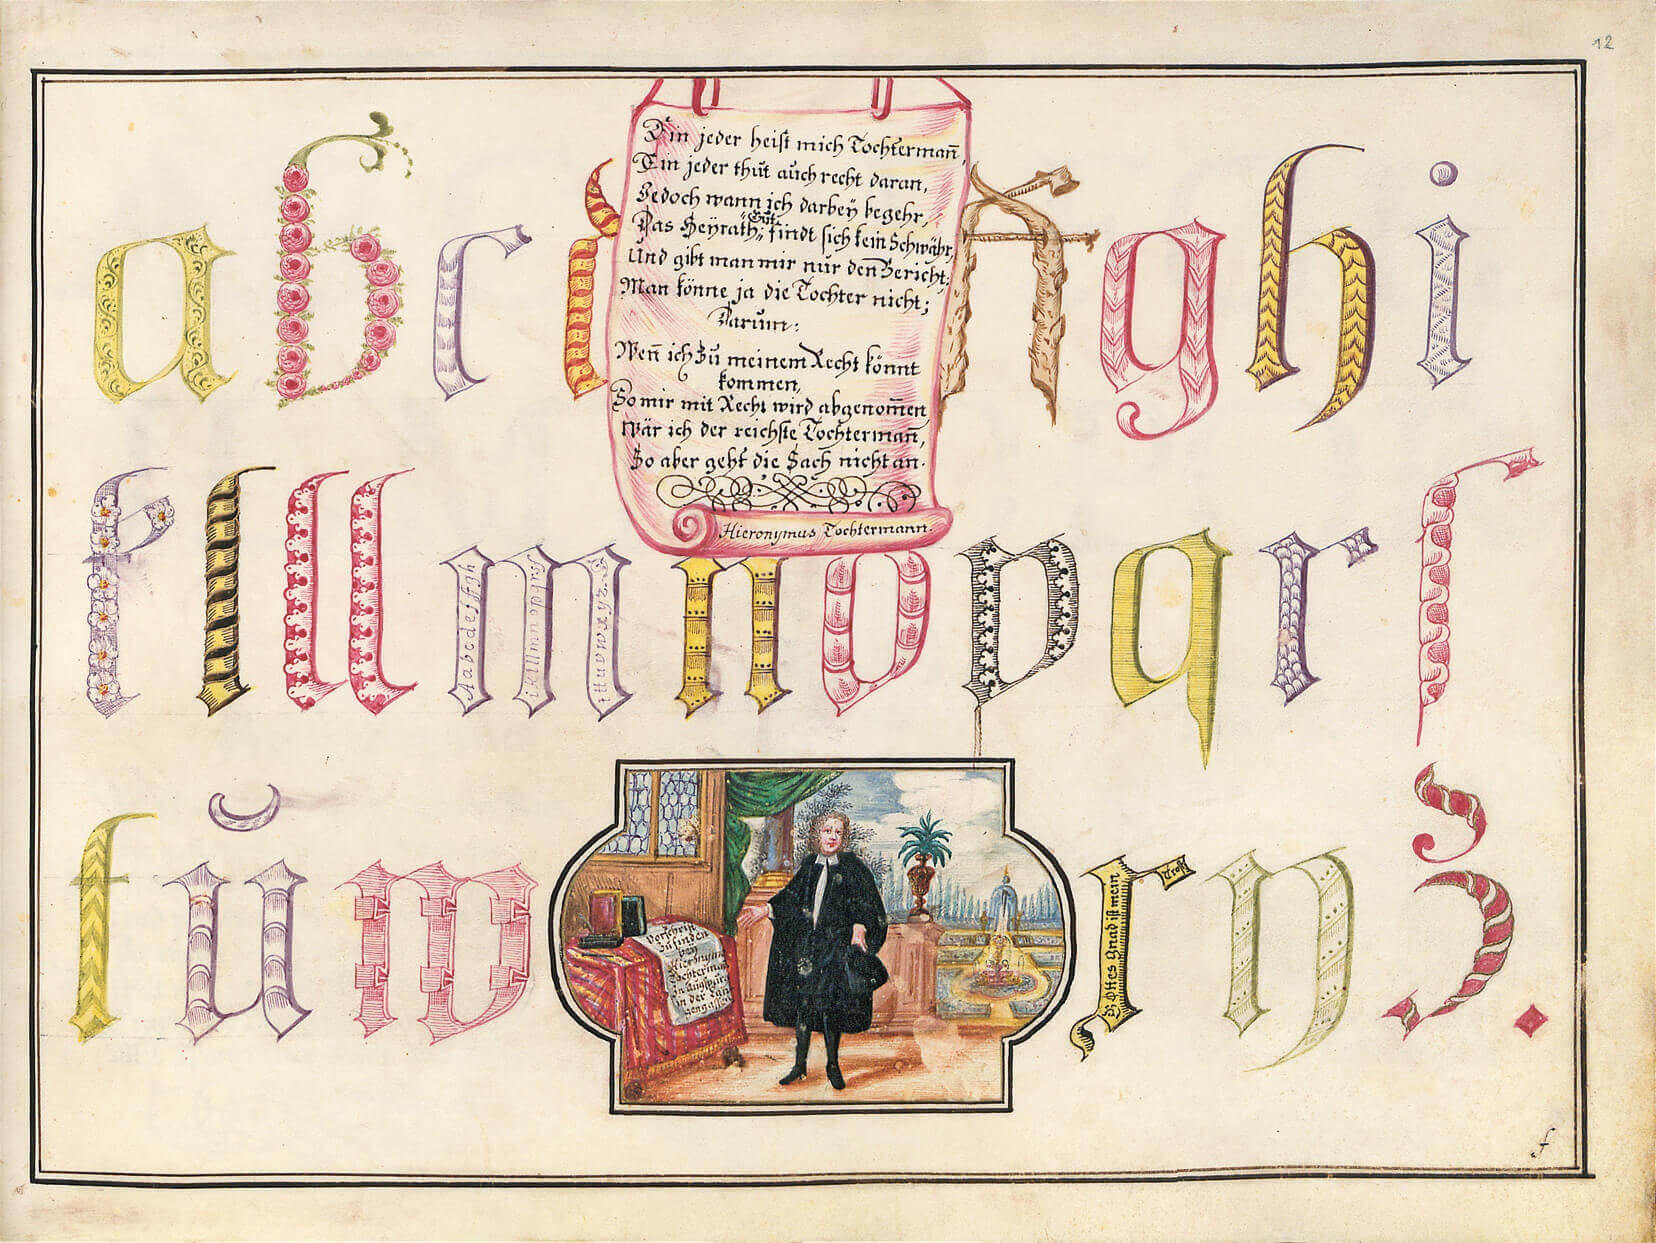 12
a b c d
Ein jeder heist mich Tochtermañ,
Ein jeder thut auch recht daran,
Jedoch wann ich darbeÿ begehr,
Das Heÿrath, Gut, findt sich kein Schwähr,
Und gibt man mir nur den Bericht;
Man könne ja die Tochter nicht;
Darum:
Weñ ich Zu meinem Recht könnt
kommen,
So mir mit Recht wird abgenom̄en
Wär ich der reichste Tochtermañ,
So aber geht die Sach nicht an.
Hieronymus Tochtermann.
g h i
k l ll m n o p q r ſ
A a b c d e f f g h
i k l l m n n o p q r s ſ
t t u v w x y z
f ŭ w
Vorschrifft
Zu finden
beÿ
Hieronymus
Tochterman
in Augspurg
in der
gengassen
x y z.
GOttes Gnad ist mein
Trost
f